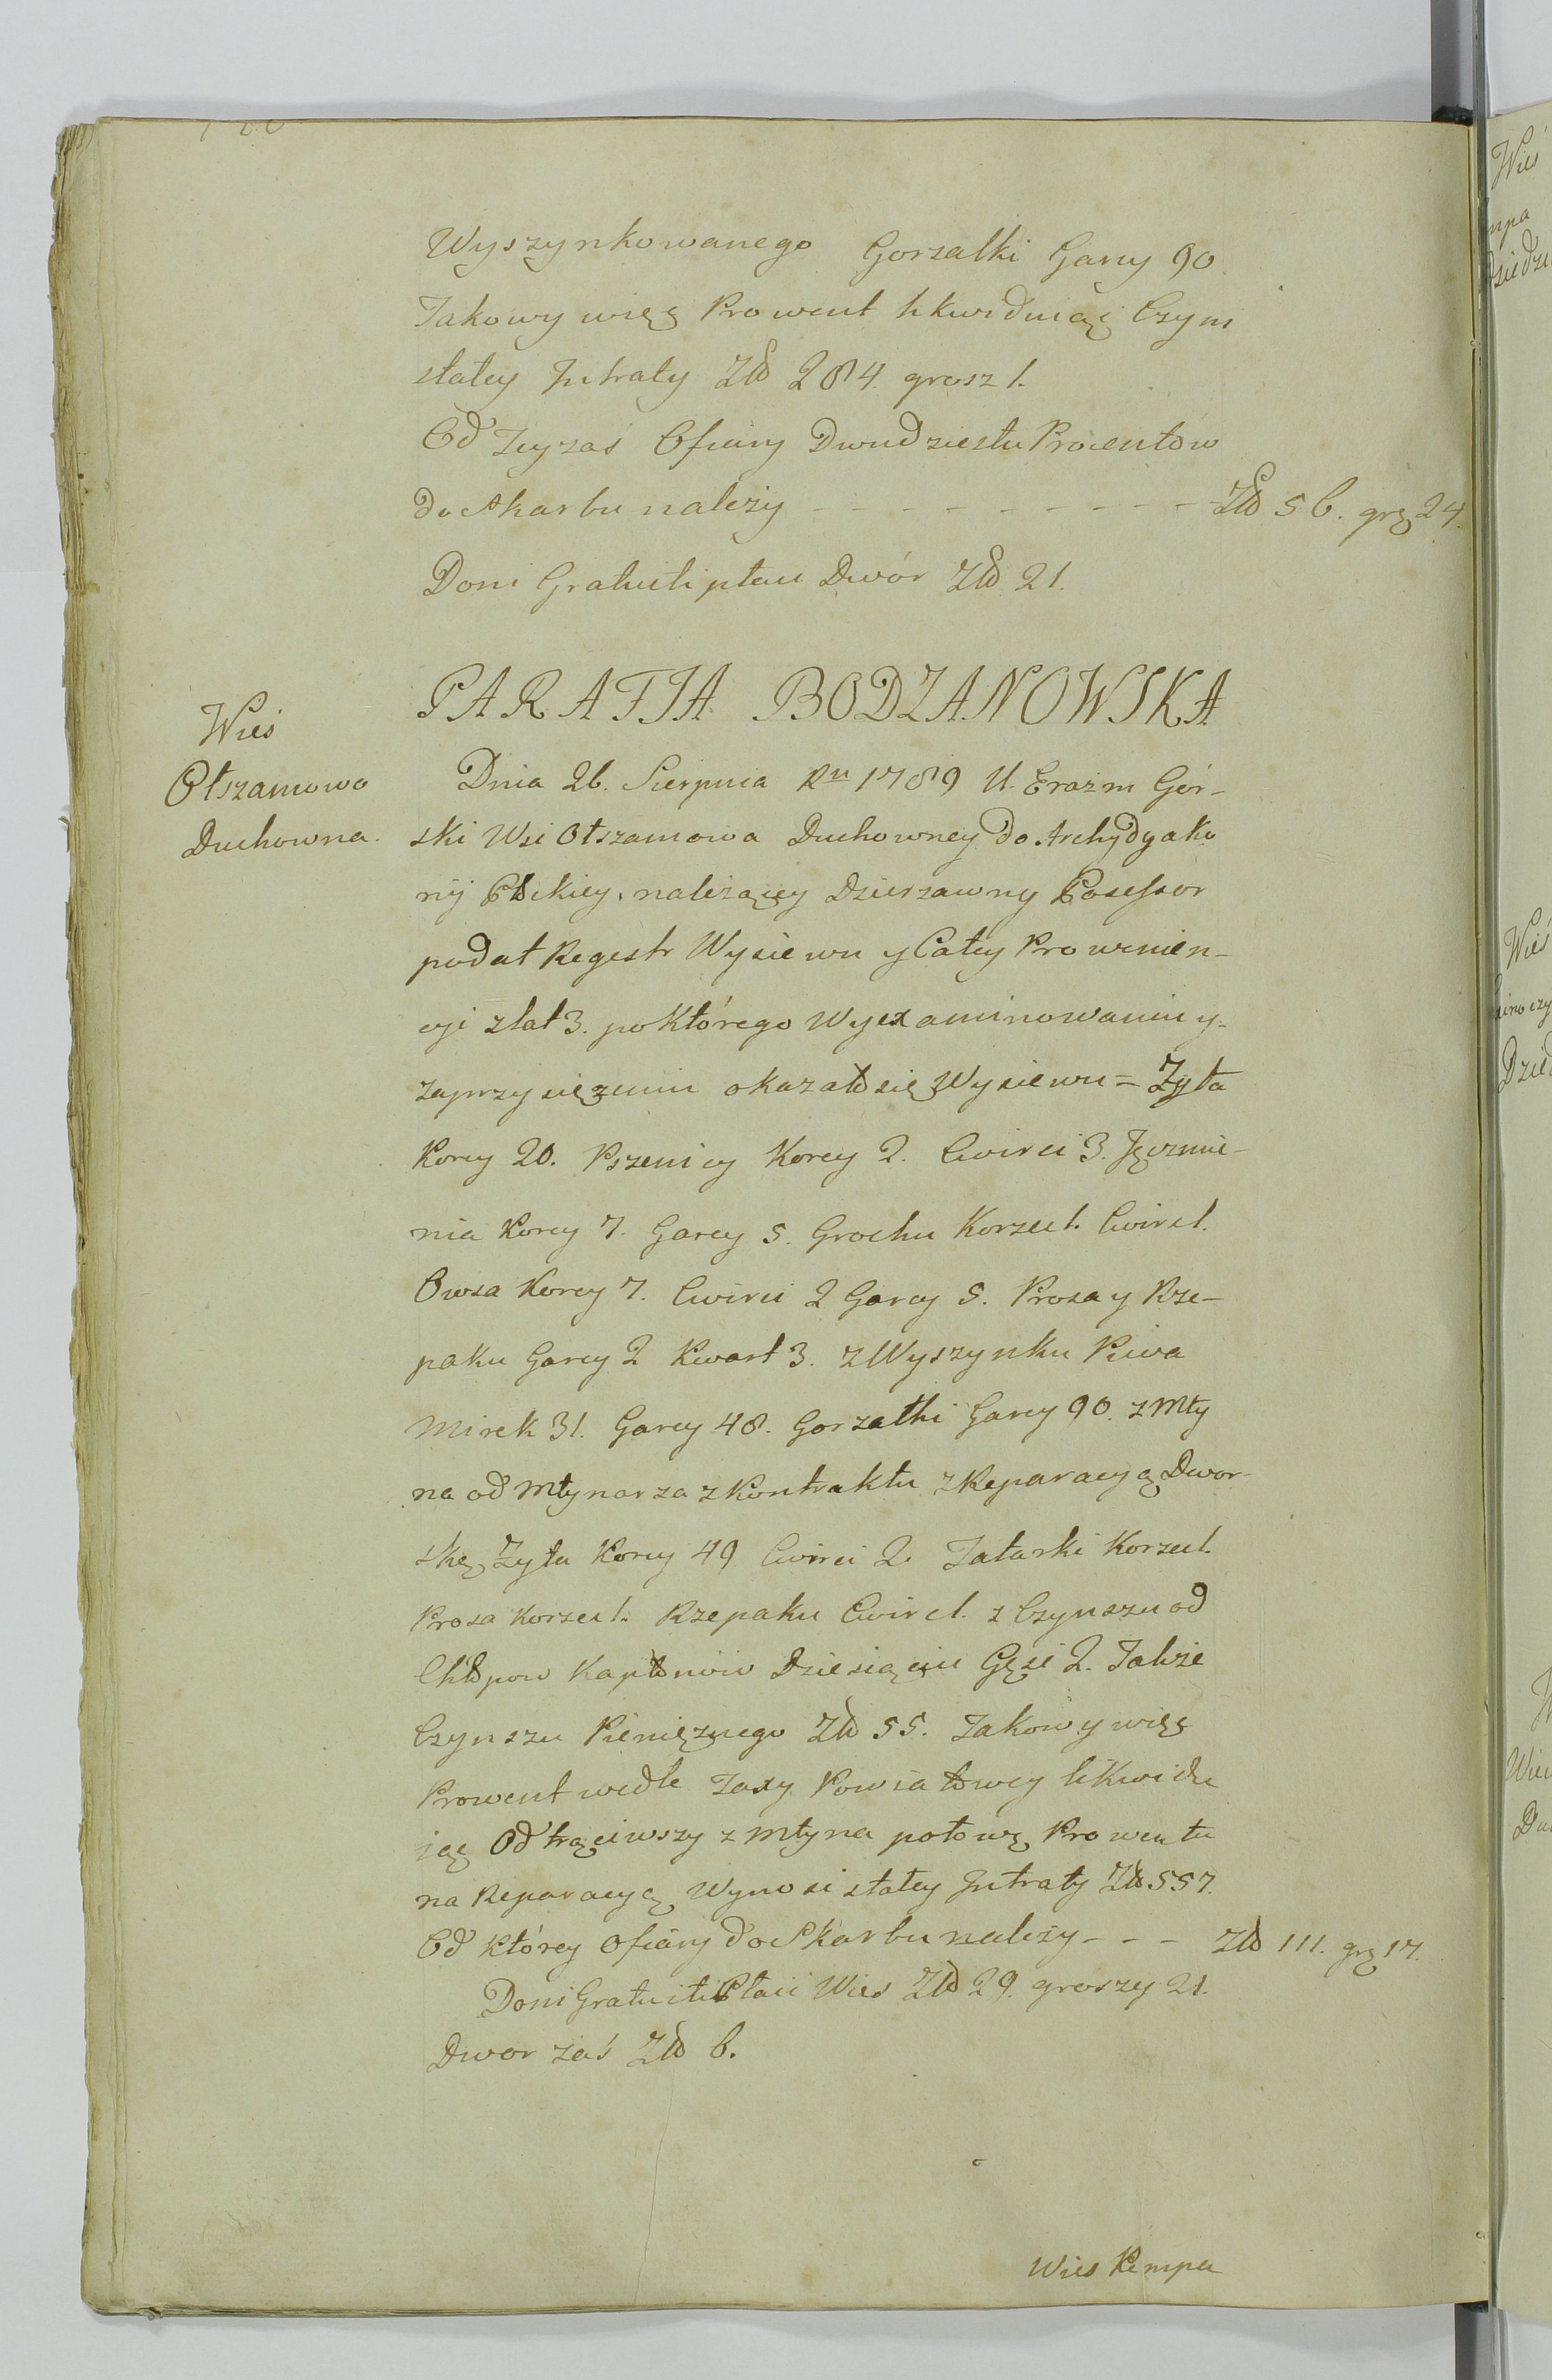 Wyszynkowanego Gorzalki Garcy 90
Takowy więc Prowent likwiduiąc Czym
stałey Intraty Złł 284. grosz 1.
Od Tey zas Ofiary Dwudziestu Procentow
do Skarbu należy - - - - - - - - - - Złł 56. grz 24.
Doni Gratuiti płaci Dwór Złł 21.
PARAFIA BODZANOWSKA
Wieś
Otszamowo
Duchowna.
Dnia 26. Sierpnia Ru 1789 U. Erazm Gór-
ski Wsi Otszamowa Duchowney do Archydyako
nij Płckiey należącey Dzierzawny Possessor
podał Regestr Wysiewu y Całey Prowenien-
cyi z lat 3. po którego Wyexaminowaniu y-
zaprzysiężeniu okazało się Wysiewu = Zyta
Korcy 20. Pszenicy Korcy 2. Cwirci 3. Jęczmie-
nia Korcy 7. Garcy 5. Grochu Korzec 1. Cwirc 1.
Owsa Korcy 7. Cwirci 2 Garcy 5. Prosa y Rze-
paku Garcy 2 Kwart 3. z Wyszynku Piwa
Mirek 31. Garcy 48. Gorzałki Garcy 90. z Mły
na od Młynarza z Kontraktu z Reparacyą Dwor-
ską Zyta Korcy 49 Cwirci 2. Tatarki Korzec 1.
Prosa Korzec 1. Rzepaku Cwirc 1. z Czynszu od
Chłopow Kapłonów Dziesięciu Gęsi 2. Także
Czynszu Pieniężnego Złł 55. Takowy więc
Prowent wedle Taxy Powiatowey likwidu
iąc Odtrąciwszy z Młyna połowę Prowentu
na Reparacyą Wynosi stałey Intraty Złł 557.
Od którey Ofiary do Skarbu należy - - - Złł 111. grz 17.
Doni Gratuiti Płaci Wies Złł 29. groszy 21.
Dwor zaś Złł 6.
Wies Kempa